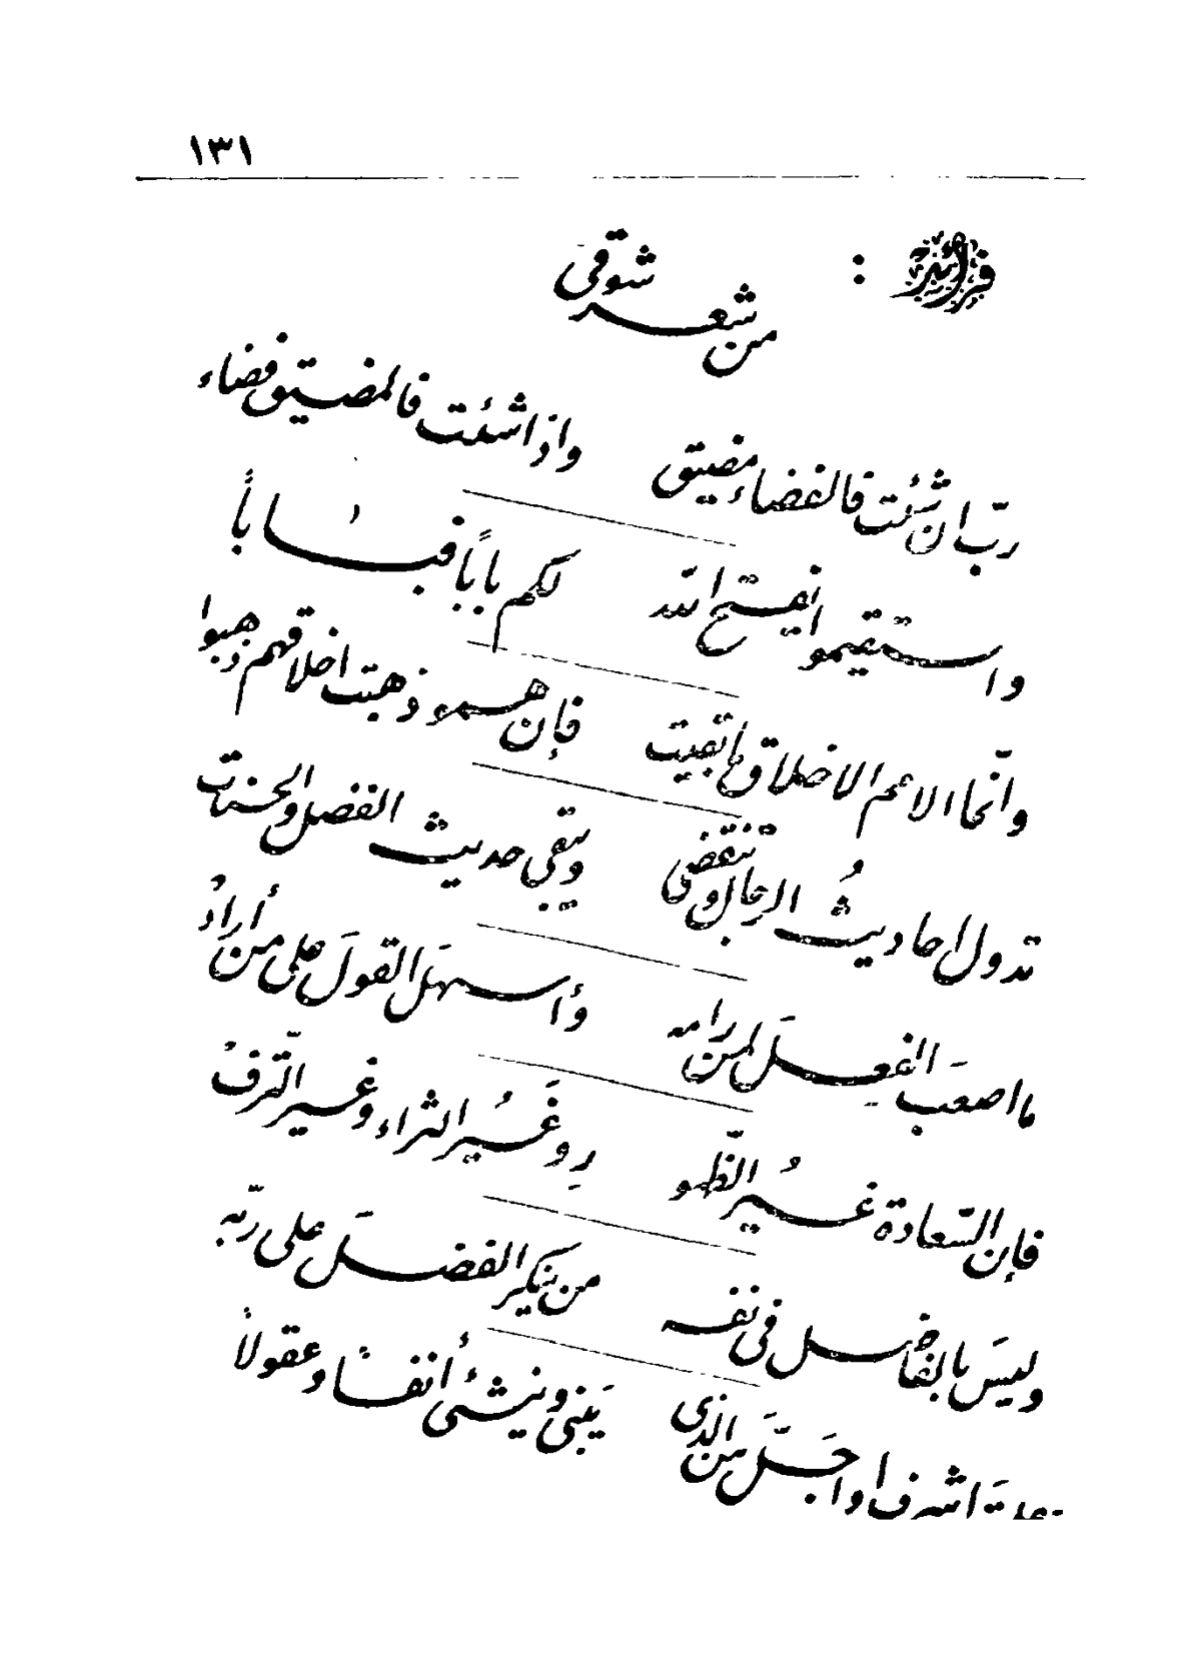 ١٣١
فرائد :
من شعر شوقي
ربّ ان شئت فالفضاء مضيق واذا شئت فالمضيق فضاء
واستقيموا يفتح الله لكم بابًا فبابًا
وانّما الامم الاخلاق ما بقيت فإن همو ذهبت اخلاقهم ذهبوا
تدول احاديثُ الرجال وتنقضي ويبقى حديث الفضل والحسنات
ما اصعبَ الفعلَ لمن رامه وأسهلَ القولَ على من أرادْ
فإن السّعادة غيرُ الظّهو رِ وغَيرُ الثراء وغير التّرفْ
وليسَ بالفاضل في نفسه من ينكر الفضلَ على ربّه
اشرف او اجَلَّ من الذي يَبني وينشئُ أنفسًا وعقولاً